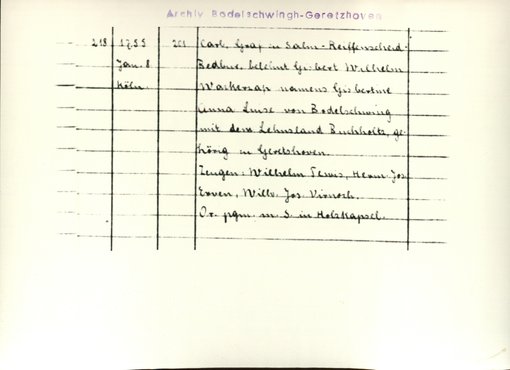 Archiv Bodelschwingh-Geretzhoven
218 1755 201 Carl, Graf zu Salm-Reifferscheid-
Jan. 8. Bedbur, belehnt Gisbert Wilhelm
Köln. namens Gisbertine
Anna Luise von Bodelschwing
mit dem Lehnsland Buchholtz, ge-
hörig zu Geretshoven.
Zeugen: Wilhelm Herm. Jos.
Erven, Wilh. Jos.
Or. pgm. m. S. in Holzkapsel.